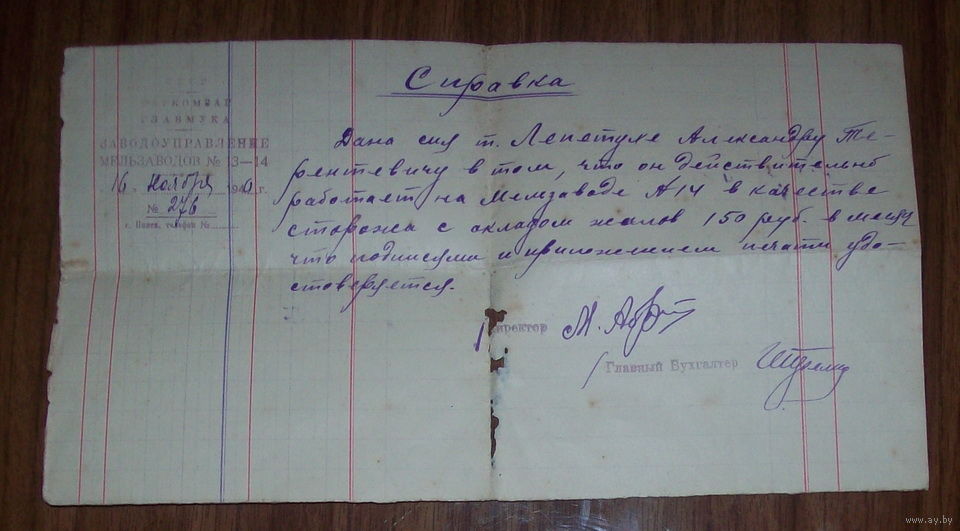 СССР
НАРКОМЗАГ
ГЛАВМУКА
ЗАВОДОУПРАВЛЕНИЕ
МЕЛЬЗАВОДОВ № 13—14
16 ноября 194 г.
№ 276
г. Пинск, телефон №
Справка
Дана сия т. Лепетухе Александру Те-
рентевичу в том, что он действительно
работает на Мелзаводе №14 в качестве
сторожа с окладом жалов 150 руб. в месяц
что подписями и приложением печати удо-
стоверяется.
Директор М.
Главный Бухгалтер
www.ay.by